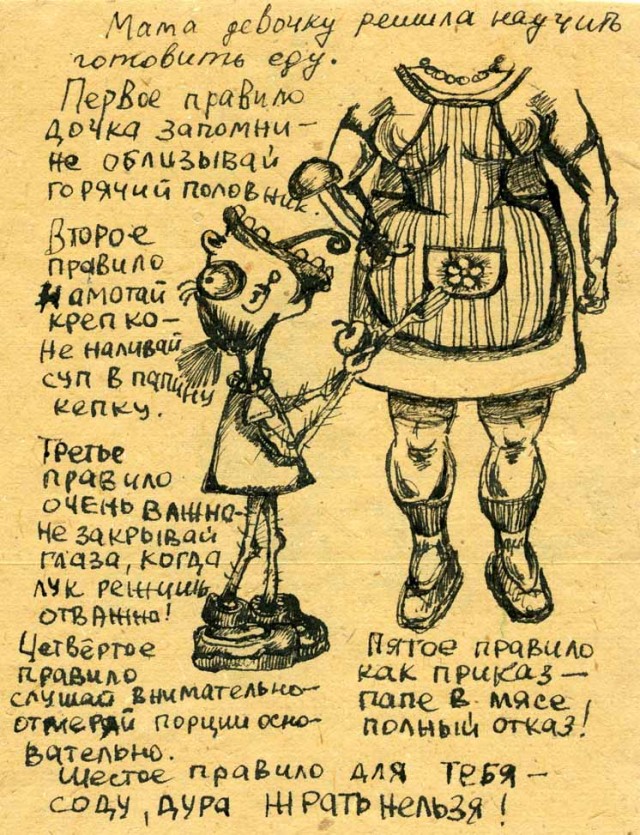 Мама девочку решила научить
готовить еду.
Первое правило
дочка запомни —
не облизывай
горячий половник.
Второе
правило
намотай
крепко —
не наливай
суп в папину
кепку.
Третье
правило
очень важно —
не закрывай
глаза, когда
лук режишь
отважно!
Четвёртое
правило
слушай внимательно —
отмеряй порции осно-
вательно.
Пятое правило
как приказ —
папе в мясе
полный отказ!
Шестое правило для тебя —
соду, дура жрать нельзя!